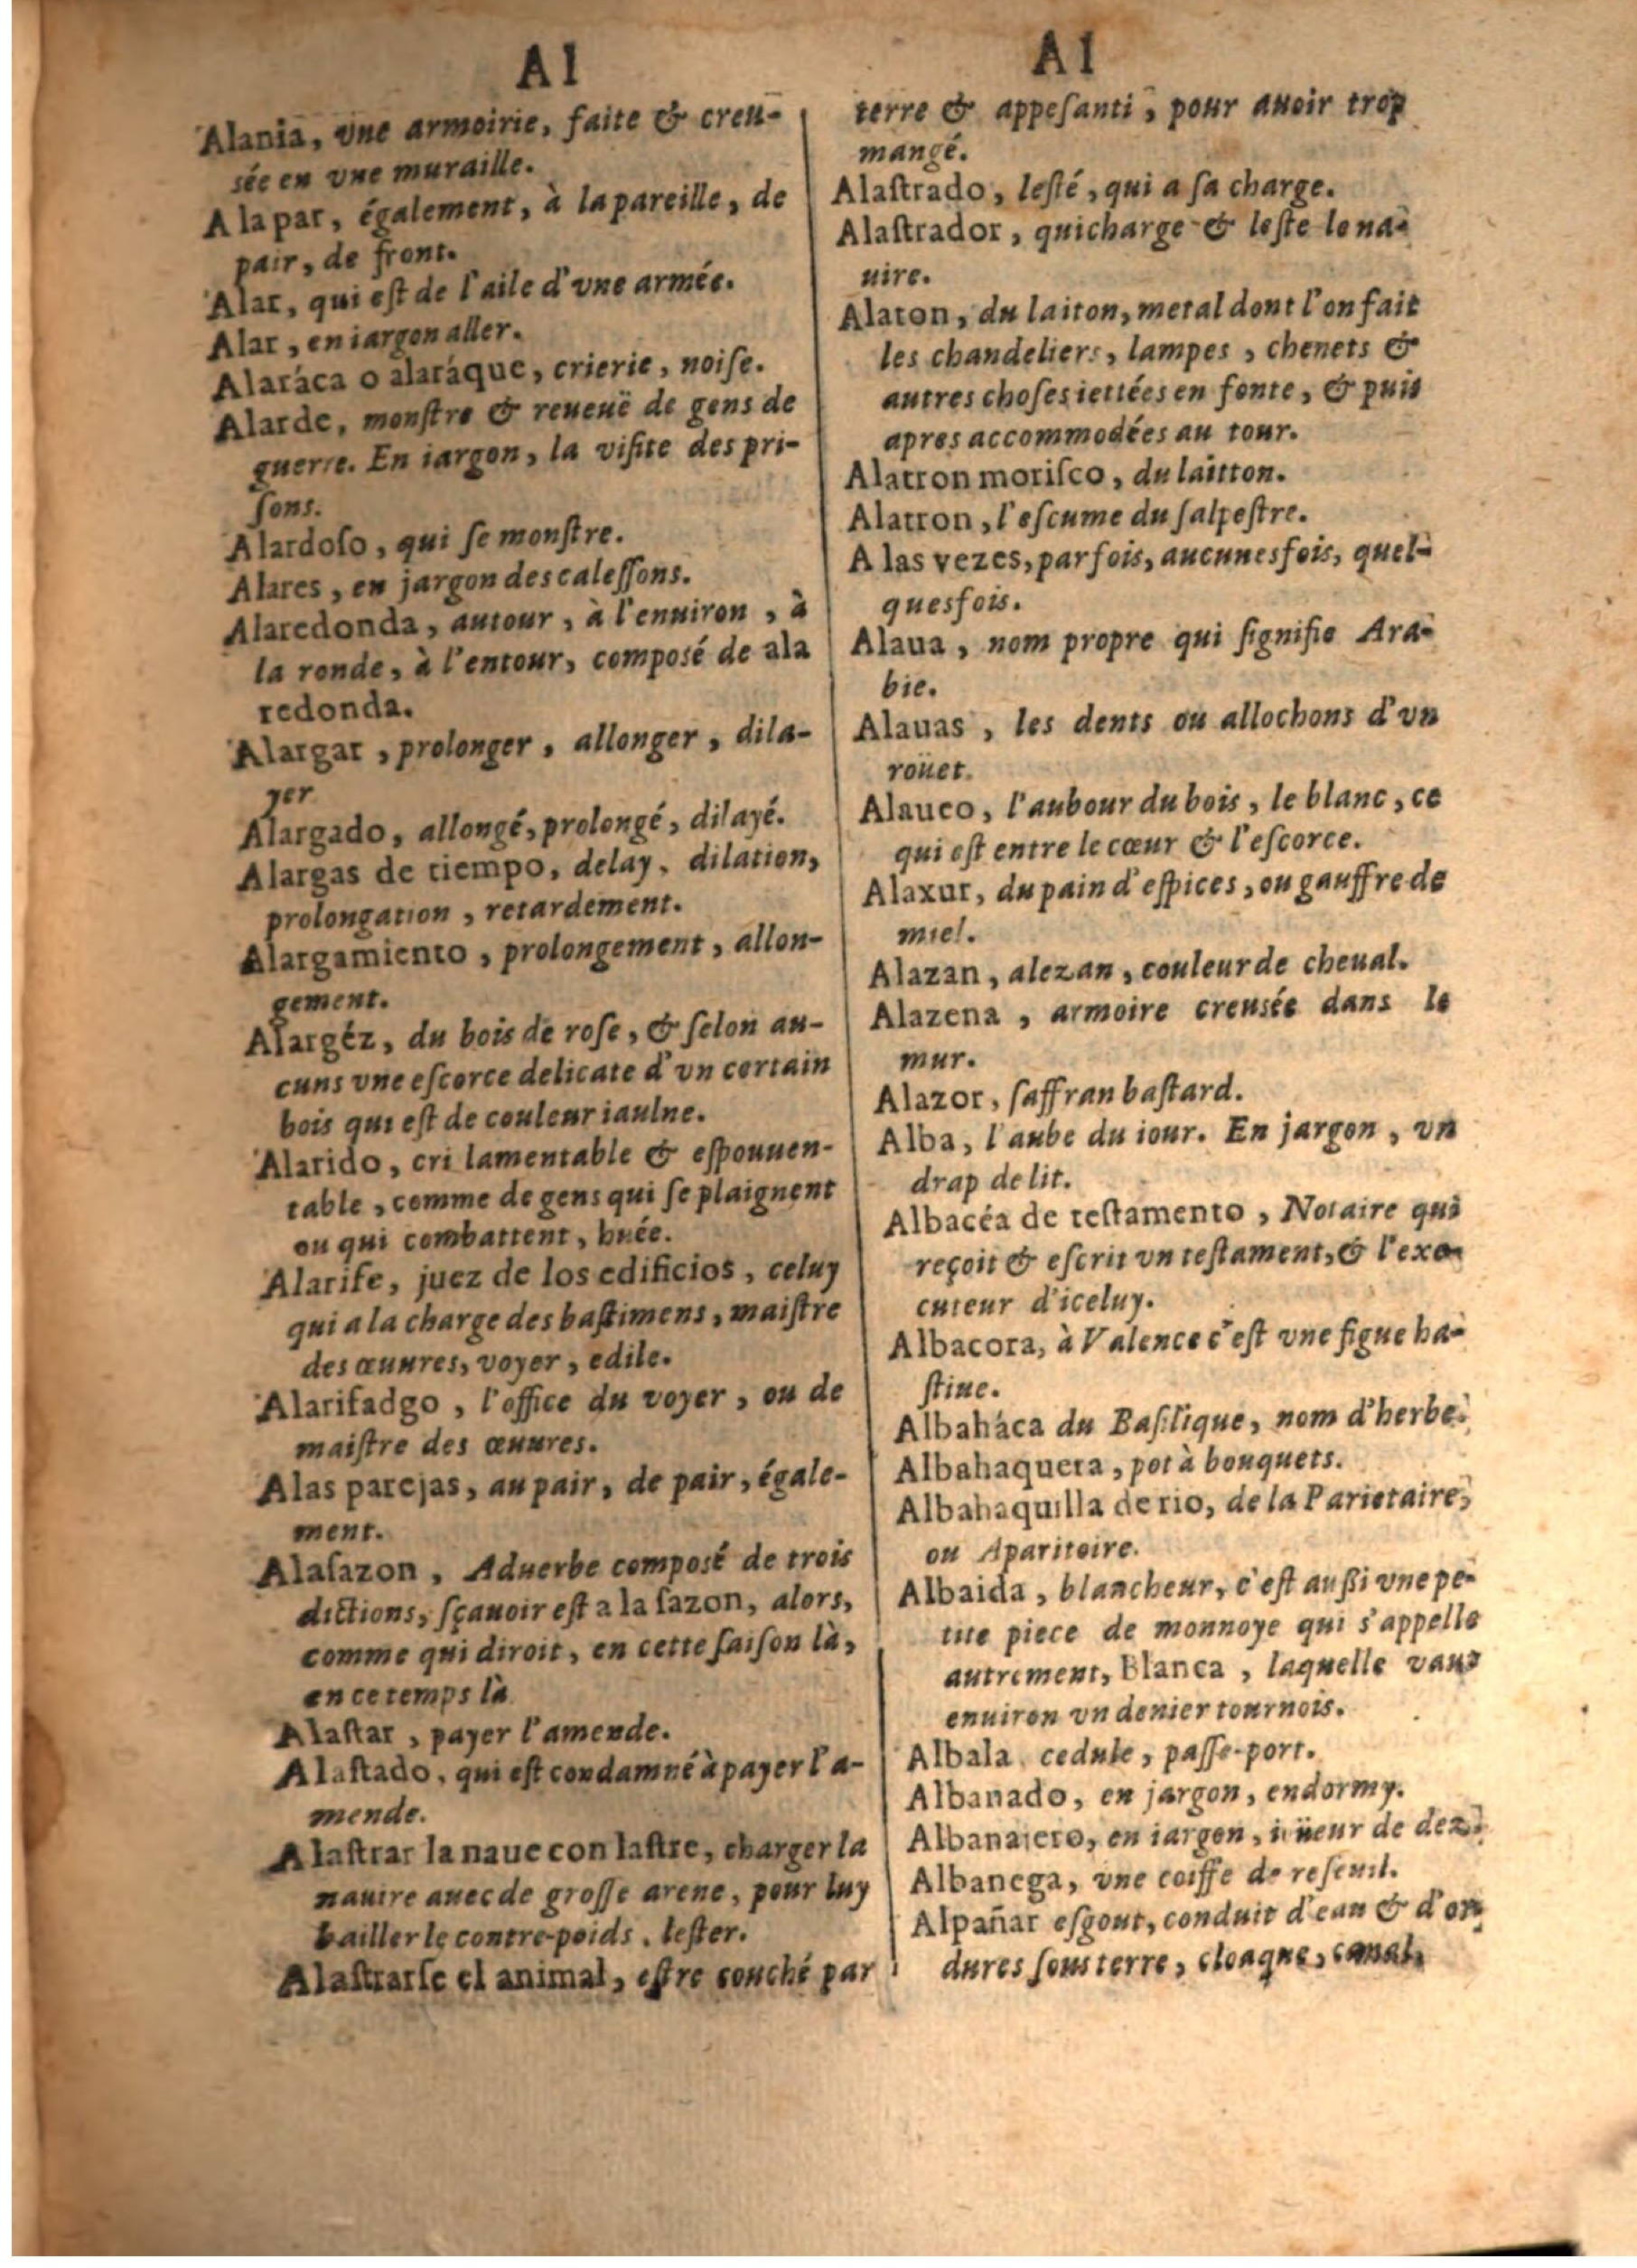 Al
Alania, vne armoirie, faite & creu-
sée en vne muraille.
A la par, également, à la pareille, de
pair, de front.
Alar, qui eſt de l'aile d'vne armée.
Alar, en iargon aller.
Alaráca o alaráque, crierie, noiſe.
Alarde, monſtre & reueuë de gens de
guerre. En iargon, la viſite des pri-
ſons.
Alardoſo, qui ſe monſtre.
Alares, en jargon des caleſſons.
Alaredonda, autour, à l'enuiron, à
la ronde, à l'entour, composé de ala
redonda.
Alargar, prolonger, allonger, dila-
yer
Alargado, allongé, prolongé, dilayé.
Alargas de tiempo, delay, dilation,
prolongation, retardement.
Alargamiento, prolongement, allon-
gement.
Alargéz, du bois de roſe, & ſelon au-
cuns vne eſcorce delicate d'vn certain
bois qui eſt de couleur iaulne.
Alarido, cri lamentable & eſpouuen-
table, comme de gens qui ſe plaignent
ou qui combattent, huée.
Alarife, juez de los edificios, celuy
qui a la charge des baſtimens, maiſtre
des œuures, voyer, edile.
Alarifadgo, l'office du voyer, ou de
maiſtre des œuures.
Alas parejas, au pair, de pair, égale-
ment.
Alaſazon, Aduerbe composé de trois
dictions, ſçauoir eſt a la ſazon, alors,
comme qui diroit, en cette ſaiſon là,
en ce temps là
Alaſtar, payer l'amende.
Alaſtado, qui eſt condamné à payer l'a-
mende.
Alaſtrar la naue con laſtre, charger la
nauire auec de groſſe arene, pour luy
bailler le contre-poids, leſter.
Alaſtrarſe el animal, eſtre couché par
Al
terre & appeſanti, pour auoir trop
mangé.
Alaſtrado, leſté, qui a ſa charge.
Alaſtrador, qui charge & leſte le na-
uire.
Alaton, du laiton, metal dont l'on fait
les chandeliers, lampes, chenets &
autres choſes iettées en fonte, & puis
apres accommodées au tour.
Alatron moriſco, du laitton.
Alatron, l'eſcume du ſalpeſtre.
A las vezes, par fois, aucunesfois, quel-
quesfois.
Alaua, nom propre qui ſignifie Ara-
bie.
Alauas, les dents ou allochons d'vn
roüet.
Alauco, l'aubour du bois, le blanc, ce
qui eſt entre le cœur & l'eſcorce.
Alaxur, du pain d'eſpices, ou gauffre de
miel.
Alazan, alezan, couleur de cheual.
Alazena, armoire creusée dans le
mur.
Alazor, ſaffran baſtard.
Alba, l'aube du iour. En jargon, vn
drap de lit.
Albacéa de teſtamento, Notaire qui
reçoit & eſcrit vn teſtament, & l'exe-
cuteur d'iceluy.
Albacora, à Valence c'eſt vne figue ha-
ſtiue.
Albaháca du Baſilique, nom d'herbe.
Albahaquera, pot à bouquets.
Albahaquilla de rio, de la Parietaire,
ou Aparitoire.
Albaida, blancheur, c'eſt außi vne pe-
tite piece de monnoye qui s'appelle
autrement, Blanca, laquelle vaut
enuiron vn denier tournois.
Albala, cedule, paſſe-port.
Albanado, en jargon, endormy.
Albanaiero, en iargon, ioüeur de dez.
Albanega, vne coiffe de reſeuil.
Alpañar eſgout, conduit d'eau & d'or-
dures ſous terre, cloaque, canal.